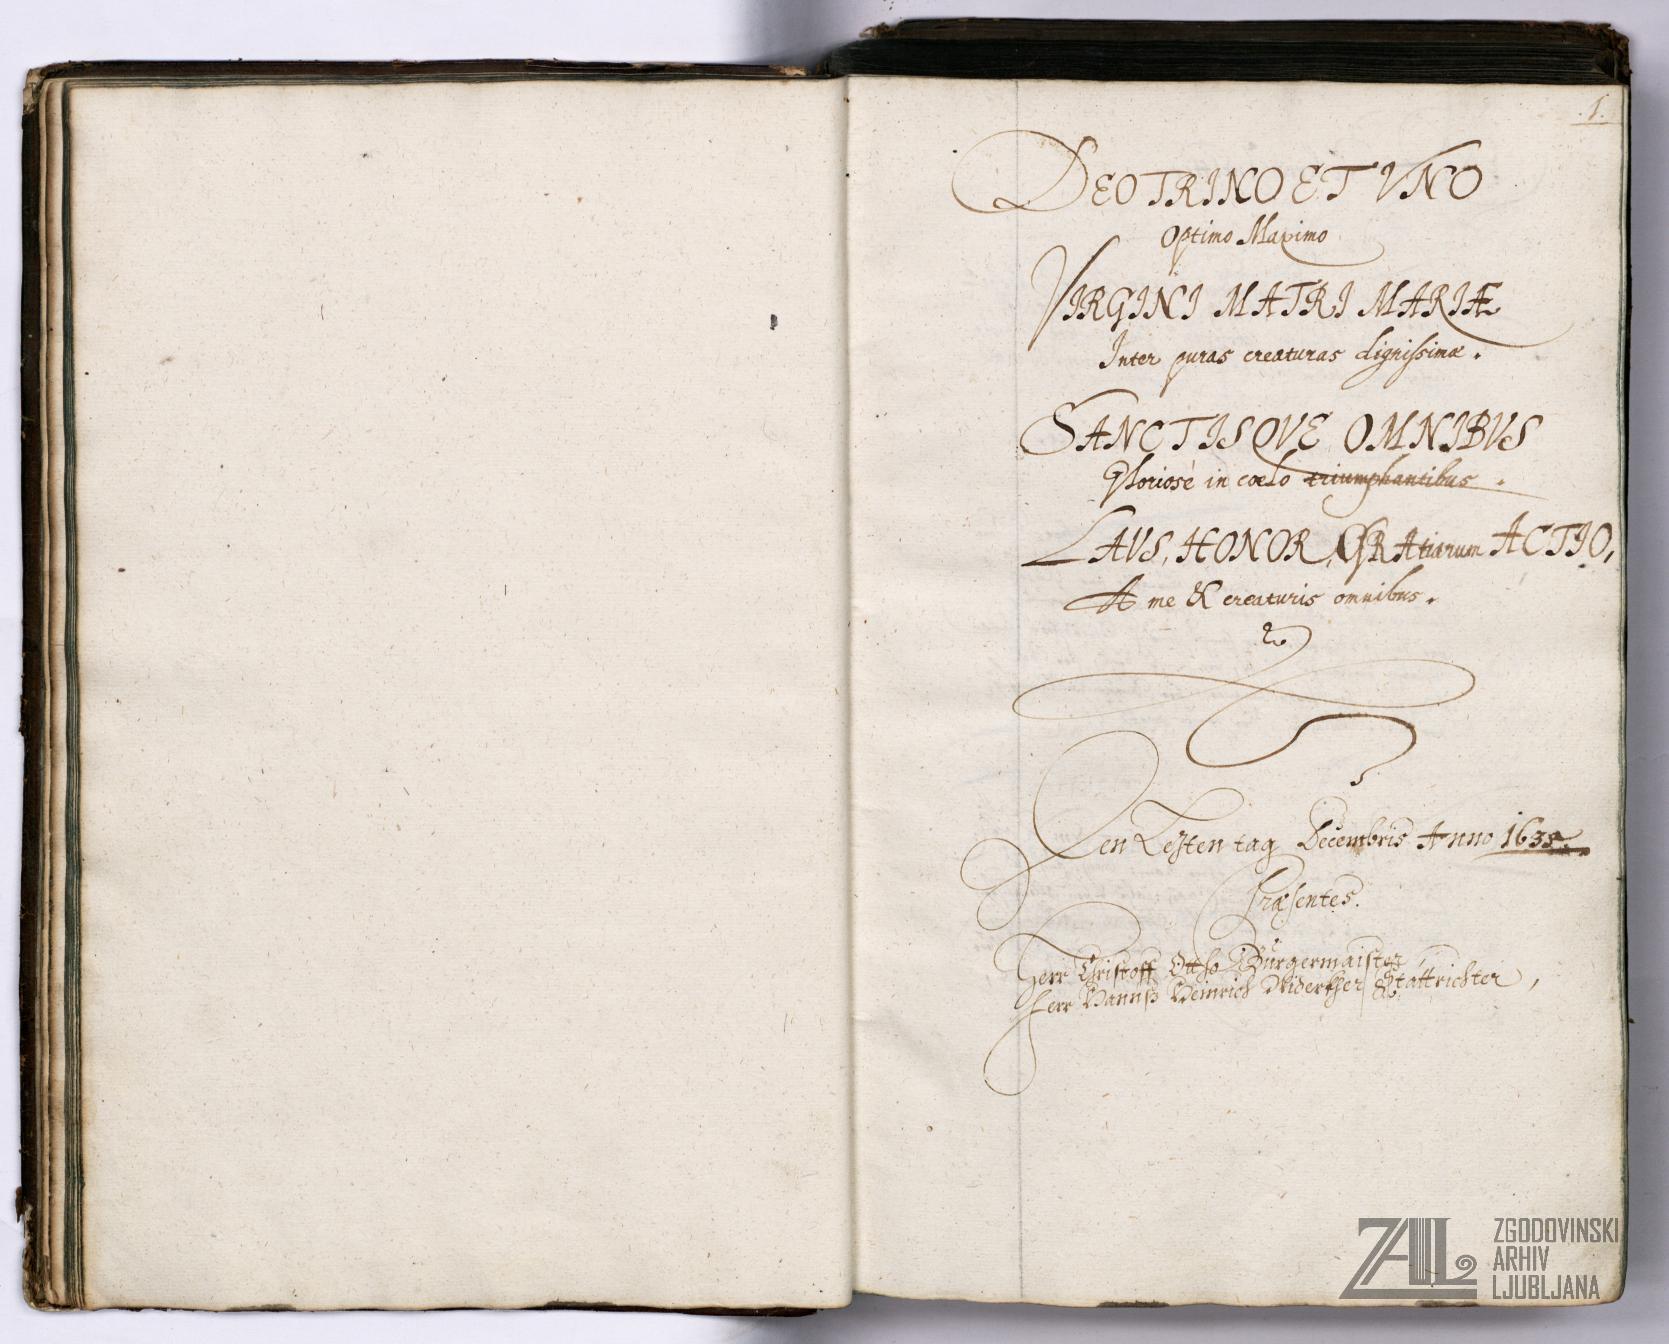 1.
DEO TRINO ET VNO
Optimo Maximo
VIRGINI MATRI MARIÆ
Inter puras creaturas dignissimæ.
SANCTISQVE OMNIBVS
Gloriosè in cœlo triumphantibus.
LAVS, HONOR, GRAtiarum ACTIO,
A me & creaturis omnibus.
Den Lesten tag Decembris Anno 1638.
Præsentes.
Herr Christoff Ottho Bürgermaister,
Herr Hannß Heinrich Stattrichter,
ZAL ZGODOVINSKI
ARHIV
LJUBLJANA